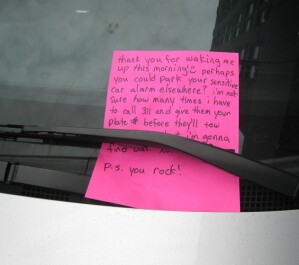 thank you for waking me
up this morning! perhaps
you could park your sensitive
car alarm elsewhere? i'm not
sure how many times i have
to call 311 and give them your
plate # before they'll tow
but i'm gonna
find out.
p.s. you rock!